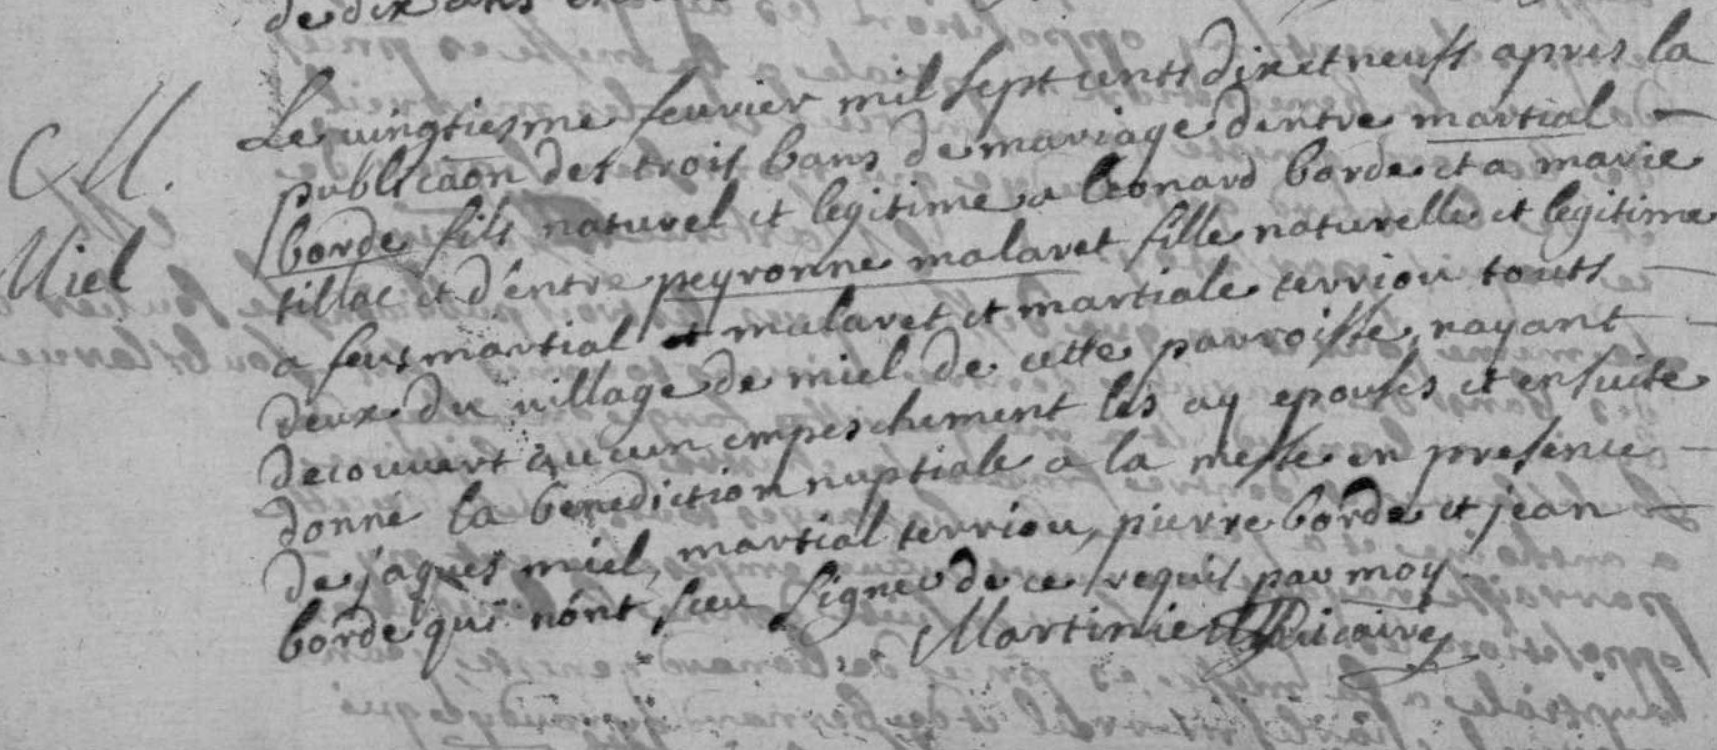 de dix ans
M.
Miel
Le vingtiesme feuvier mil sept cents dix et neuf apres la
publicaon des trois bans de mariage dentre martial
borde fils naturel et legitime a leonard borde et a marie
tillac et d'entre peyronne malaret fille naturelle et legitime
a feus martial malaret et martiale terriou touts
deux du village de miel de cette parroisse, nayant
decouvert aucun empeschement les ay epousés et ensuite
donné la benediction nuptiale a la messe en presence
de jaques miel, martial terriou, pierre borde et jean
borde qui n'ont sceu signer de ce requis par moy
Martinie vicaire